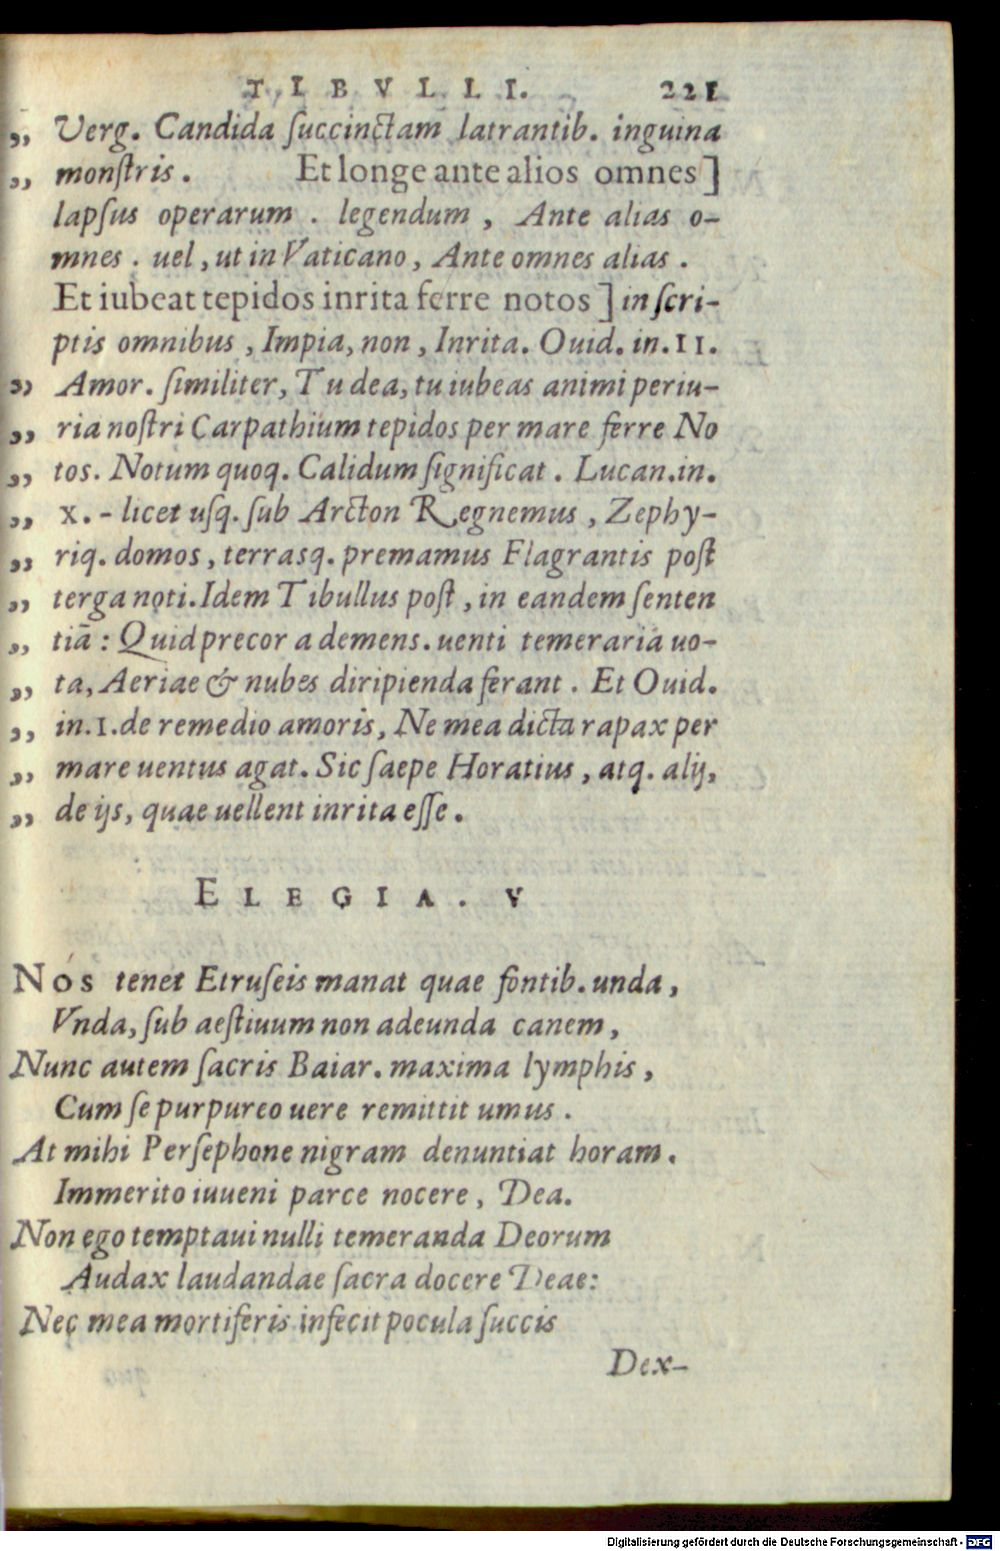 TIBVLLI. 221
„ Verg. Candida ſuccinctam latrantib. inguina
„ monſtris. Et longe ante alios omnes]
lapſus operarum. legendum, Ante alias o-
mnes. uel, ut in Vaticano, Ante omnes alias.
Et iubeat tepidos inrita ferre notos] in ſcri-
ptis omnibus, Impia, non, Inrita. Ouid. in. II.
„ Amor. ſimiliter, Tu dea, tu iubeas animi periu-
„ ria noſtri Carpathium tepidos per mare ferre No
„ tos. Notum quoq. Calidum ſignificat. Lucan. in.
„ X. - licet uſq. ſub Arcton Regnemus, Zephy-
„ riq. domos, terrasq. premamus Flagrantis poſt
„ terga noti. Idem Tibullus poſt, in eandem ſenten
„ tiã: Quid precor a demens. uenti temeraria uo-
„ ta, Aeriae & nubes diripienda ferant. Et Ouid.
„ in. I. de remedio amoris, Ne mea dicta rapax per
„ mare uentus agat. Sic ſaepe Horatius, atq. alij,
„ de ijs, quae uellent inrita eſſe.
ELEGIA. V
Nos tenet Etruſeis manat quae fontib. unda,
Vnda, ſub aeſtiuum non adeunda canem,
Nunc autem ſacris Baiar. maxima lymphis,
Cum ſe purpureo uere remittit umus.
At mihi Perſephone nigram denuntiat horam.
Immerito iuueni parce nocere, Dea.
Non ego temptaui nulli temeranda Deorum
Audax laudandae ſacra docere Deae:
Nec mea mortiferis infecit pocula ſuccis
Dex-
Digitalisierung gefördert durch die Deutsche Forschungsgemeinschaft - DFG